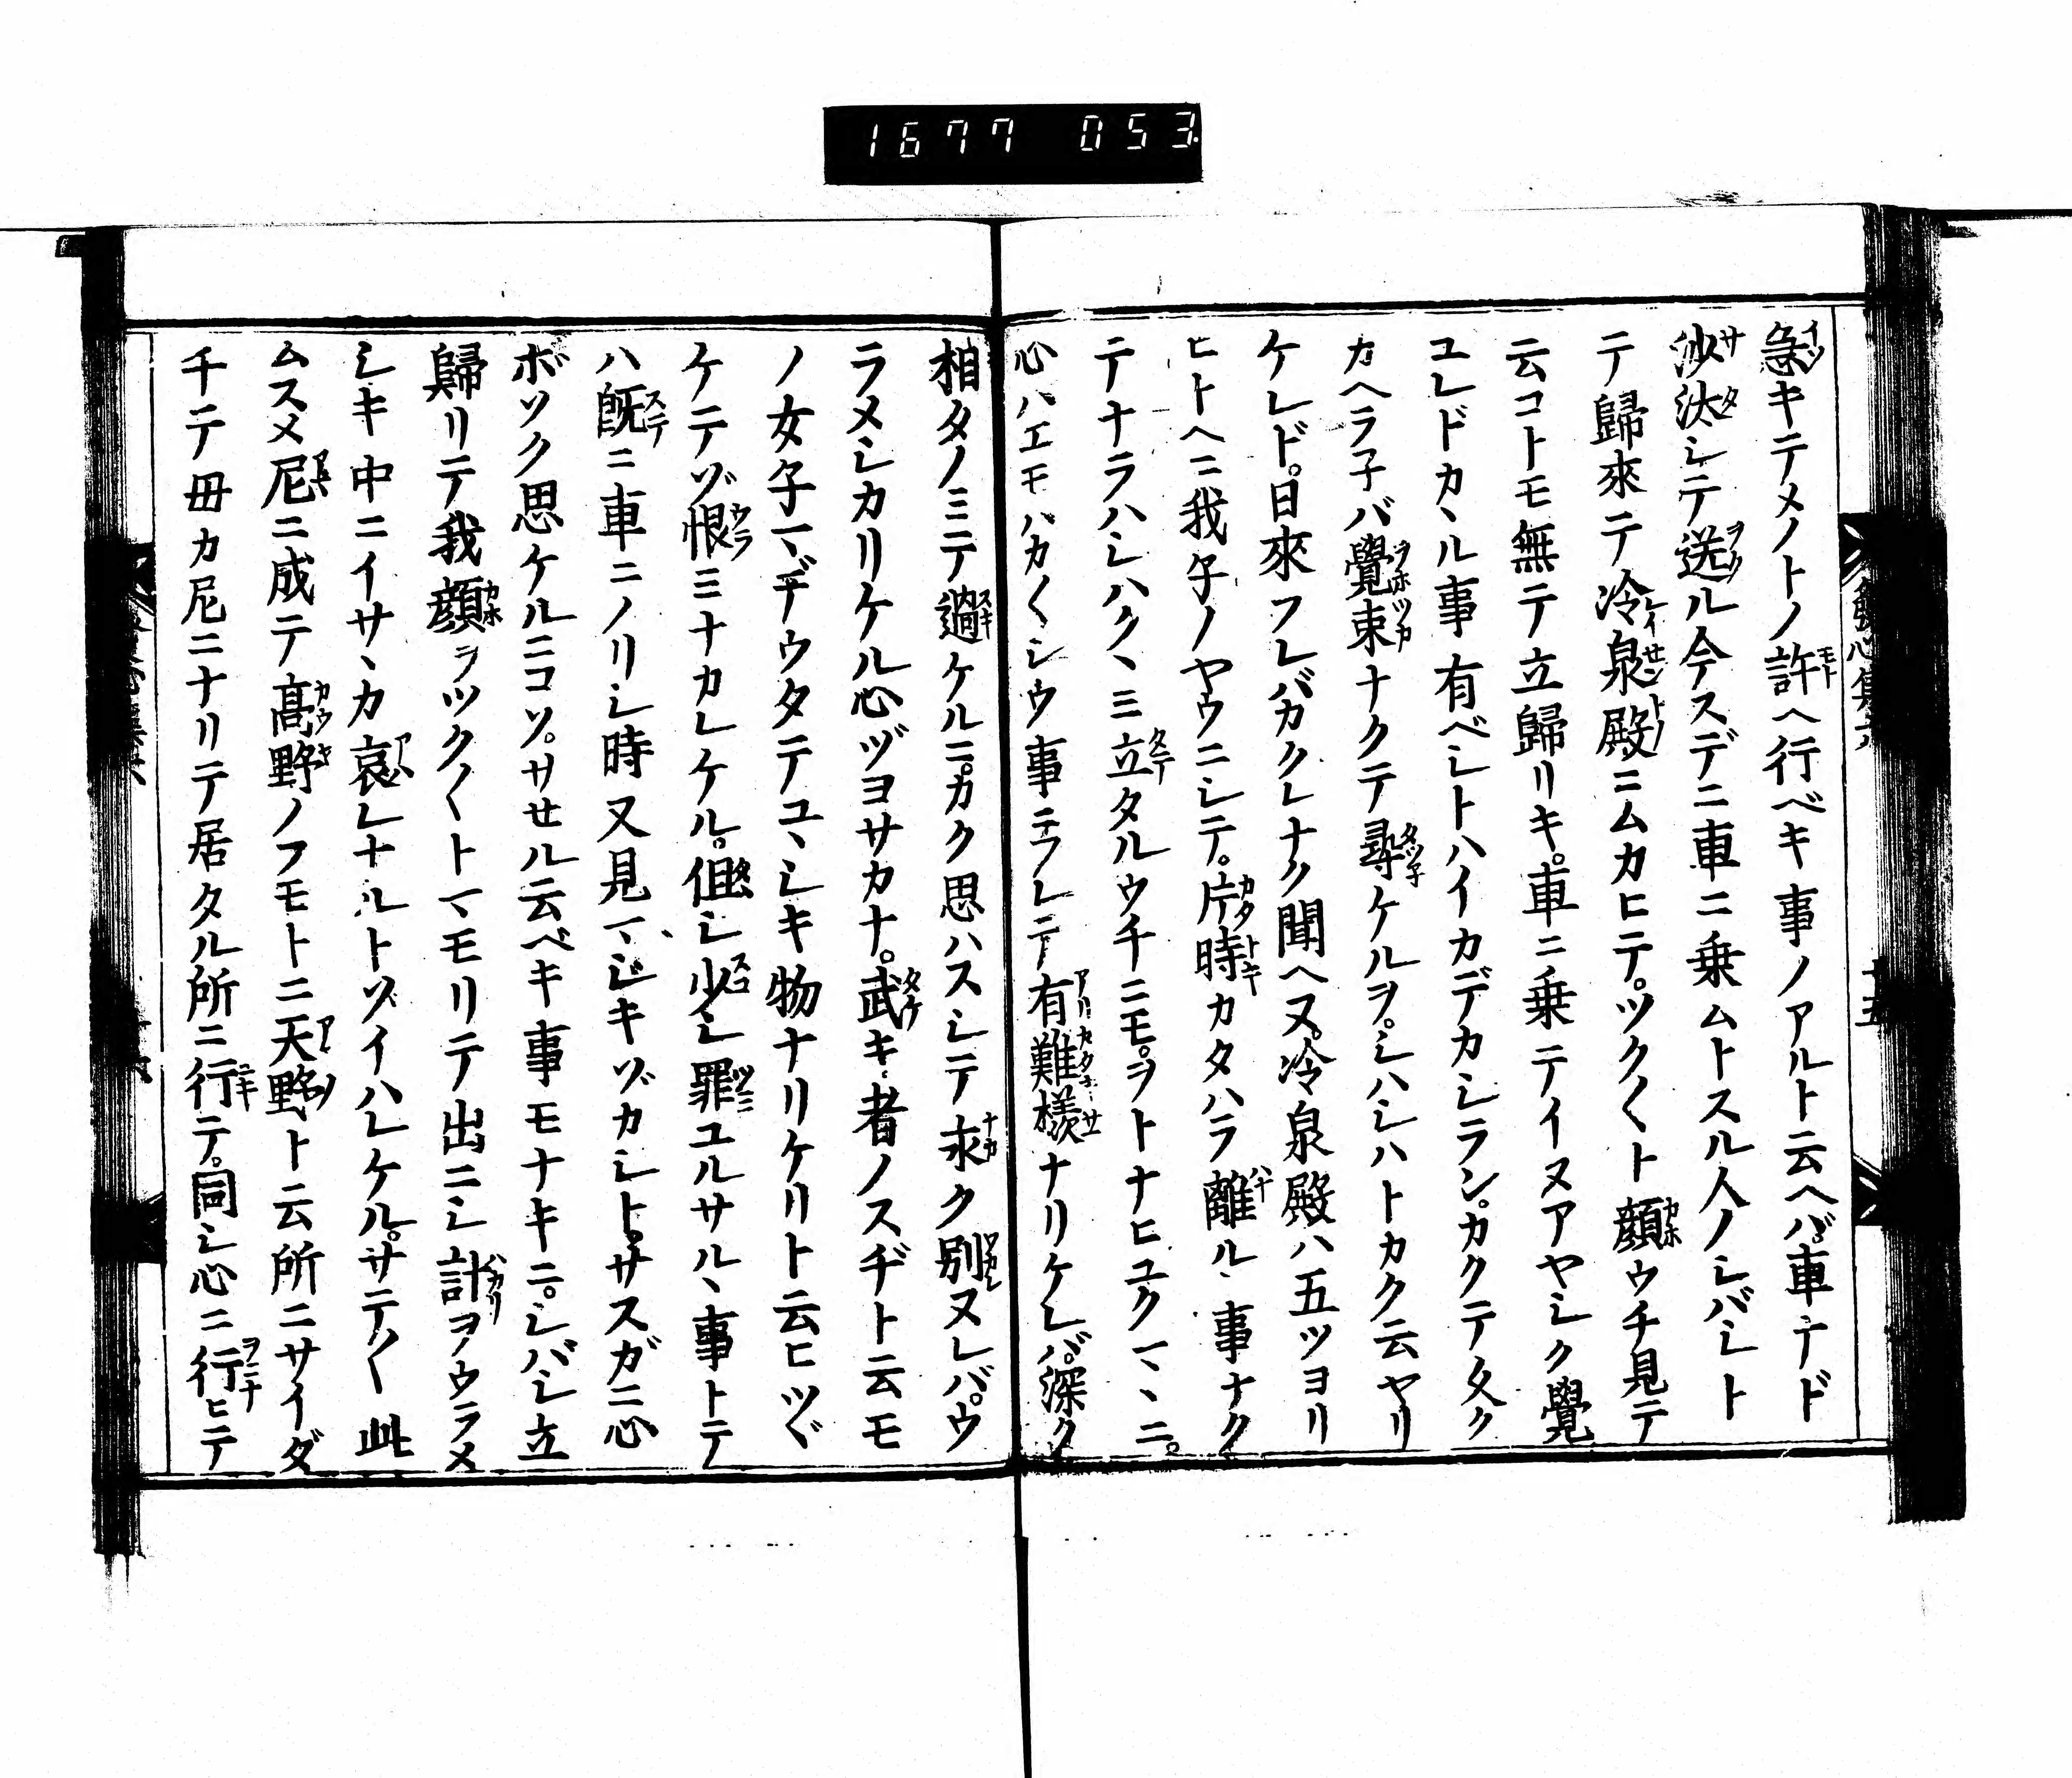 1677 053
急キテメノトノ許ヘ行ベキ事ノアルト云ヘバ車ナド
沙汰シテ送ル今スデニ車ニ乗ムトスル人ノシバシト
テ歸來テ冷泉殿ニムカヒテ。ツク〱ト顔ウチ見テ
云コトモ無テ立歸リキ。車ニ乗テイヌアヤシク覺
ユレドカヽル事有ベシトハイカデカシラン。カクテ久ク
カヘラ子バ覺束ナクテ尋ケルヲ。シハシハトカク云ヤリ
ケレド。日來フレバカクレナク聞ヘヌ。冷泉殿ハ五ツヨリ
ヒトヘニ我子ノヤウニシテ。片時カタハラ離ルヽ事ナク
テナラハシハクヽミ立タルウチニモ。ヲトナヒユクマヽニ。
心ハエモハカ〱シウ事ニフレテ有難樣ナリケレバ。深ク
相タノミテ過ケルニ。カク思ハスシテ永ク別ヌレバ。ウ
ラメシカリケル心ヅヨサカナ。武キ者ノスヂト云モ
ノ女子マヽデウタテユヽシキ物ナリケリト云ヒツヾ
ケテゾ恨ミナカレケル。但シ少シ罪ユルサルヽ事トテ
ハ既ニ車ニノリシ時又見マヽジキゾカシト。サスガニ心
ボソク思ケルニコソ。サセル云ベキ事モナキニ。シバシ立
歸リテ我顔ヲツク〱トマヽモリテ出ニシ計ヲゾウラメ
シキ中ニイサヽカ哀レナルトゾイハレケル。サテ〱此
ムスメ尼ニ成テ高野ノフモトニ天野ト云所ニサイダ
チテ母カ尼ニナリテ居タル所ニ行テ。同シ心ニ行ヒテ